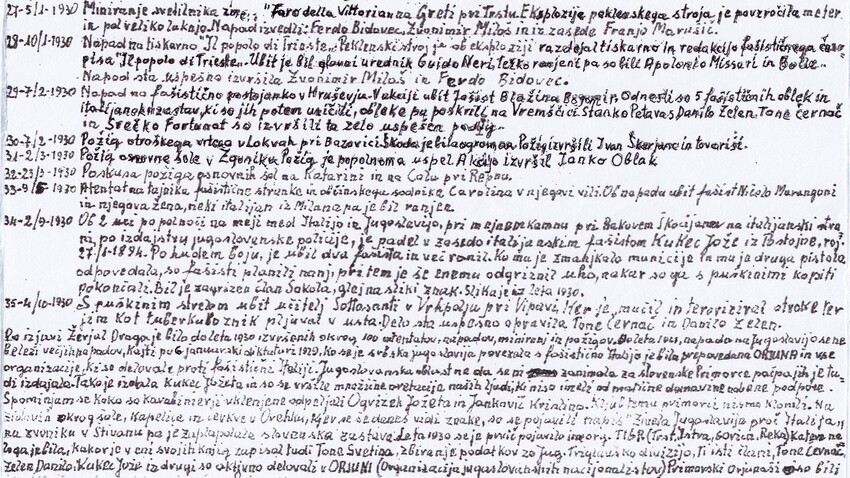 27-5/1-1930 Miniranje svetilnika zmage "Faro della Vittoria na Greti pri Trstu. Eksplozija peklenskega stroja je povzročila meter
in pol veliko luknjo. Napad izvedli: Ferdo Bidovec, Zvonimir Miloš in iz zasede Franjo Marušič.
28-10/1-1930 Napad na tiskarno "Il popolo di Trieste". Peklenski stroj je ob eksploziji razdejal tiskarno in redakcijo fašističnega časo-
pisa "Il popolo di Trieste". Ubit je bil glavni urednik Guido Neri, težko ranjeni pa so bili Apolonio Missari in Bolle
Napad sta uspešno izvršila Zvonimir Miloš in Ferdo Bidovec.
29-7/2-1930 Napad na fašistično postojanko v Hruševju. V akciji ubit fašist Blažina Odnesli so 5 fašističnih oblek in
italijanski zastavi, ki so jih potem uničili, obleke pa poskrili na Vremščici. Stanko Petavs, Danilo Želen, Tone Černač
in Srečko Fortunat so izvršili ta zelo uspešen podvig.
30-7/2-1930 Požig otroškega vrtca v Lokvah pri Bazovici. Škoda je bila ogromna. Požig izvršili Ivan Škerjanc in tovariši.
31-2/3-1930 Požig osnovne šole v Zgoniku. Požig je popolnoma uspel. Akcijo izvršil Janko Oblak
32-23/3-1930 Poskusa požiga osnovnih šol na Katarini in na Colu pri Repnu.
33-9/5-1930 Atentat na tajnika fašistične stranke in občinskega sodnika Carolina v njegovi vili. Ob napadu ubit fašist Nicolo Marangoni
in njegova žena, neki italijan iz Milana pa je bil ranjen
34-2/9-1930 Ob 2 uri po polnoči na meji med Italijo in Jugoslavijo, pri mejnem kamnu pri Bakovem Škocijanev na italijanski stra
ni, po izdajstvu jugoslovenske policije, je padel v zasedo italijanskim fašistom Kukec Jože iz Postojne, roj.
27/1-1894. Po hudem boju, je ubil dva fašista in več ranil. Ko mu je zmanjkalo municije in mu je druga pistola
odpovedala, so fašisti planili nanj, pri tem je še enemu odgriznil uho, nakar so ga s puškinimi kopiti
pokončali. Bil je zagrizen član Sokola, glej na sliki znak. Slika je iz leta 1930.
35-4/10-1930 S puškinim strelom ubit učitelj Sottosanti v Vrhpolju pri Vipavi, ker je mučil in teroriziral otroke ter
jim kot tuberkulo znik pljuval v usta. Delo sta uspešno opravila Tone Černač in Danilo Želen.
Po izjavi Žerjal Draga je bilo do leta 1930 izvršenih okrog 100 atentatov, napadov, miniranj in požigov. Do leta 1941, napada na Jugoslavijo se ne
beleži večjih napadov, kajti po 6 januarski diktaturi 1929, ko se je srbska jugoslavija povezala s fašistično Italijo je bila prepovedana ORJUNA in vse
organizacije, ki so delovale proti fašistični Italiji. Jugoslovanska oblast ne da se ni zanimala za slovenske Primorce pač pa jih je tu-
di izdajala. Tako je izdala Kukec Jožeta in so se vršile množične aretacije naših ljudi, ki niso imeli od matične domovine nobene podpore.
Spominjam se kako so karabinerji vklenjene odpeljali Ogrizek Jožeta in Jankovič Kristino. Kljub temu primorci nismo klonili. Na
zidovih okrog šole, kapelice in cerkve v Orehku, kjer se še danes vidi znake, so se pojavili napisi "Živela Jugoslavija proč Italija,
na zvoniku v Štivanu pa je zaplapolala slovenska zastava. Leta 1930 se je prvič pojavilo ime org. TIGR (Trst, Istra, Gorica, Reka) Kaj prav na
zaga je bila, kakor je v eni svojih knjig zapisal tudi Tone Svetina, zbiranje podatkov za Jug. Triglavsko divizijo, Ti isti člani, Tone Černač,
Želen Danilo, Kukec Jože in drugi so aktivno delovali v ORJUNI (Organizacija jugoslovanskih nacionalistov) Primorski Orjunaši so bili